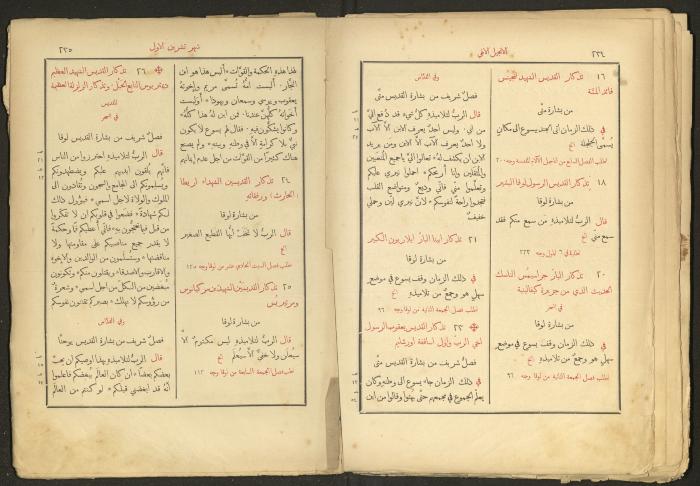 ٢٣٤
١٦ تذكار القديس الشهيد لنجينس
قائد المئة
من بشارة متى
في ذلك الزمان اتى الجند بيسوع الى مكان
١٨ تذكار القديس الرسول لوقا البشير
من بشارة لوقا
قال الرب لتلاميذه من سمع منكم فقد
سمع مني الخ
٢٠ تذكار البار جراسيمس الناسك
الحديث الذي من جزيرة كيفالينية
في السحر
من بشارة لوقا
في ذلك الزمان وقف يسوع في موضع
سهل هو وجمع من تلاميذه الخ
اطلب فصل الجمعة الثانية من لوقا وجه ٦٦
وفي القداس
فصل شريف من بشارة القديس متى
قال الرب لتلاميذه كل شيء قد دفع الي
من ابي. وليس احد يعرف الابن الا الآب
ولا احد يعرف الآب الا الابن ومن يريد
الابن ان يكشف له* تعالوا الي يا جميع المتعبين
والمثقلين وانا اريحكم* احملوا نيري عليكم
وتعلموا مني فاني وديع ومتواضع القلب
فتجدوا راحة لنفوسكم* لان نيري لين وحملي
خفيف
٢١ تذكار ابينا البار ايلاريون الكبير
من بشارة لوقا
في ذلك الزمان وقف يسوع في موضع
سهل هو وجمع من تلاميذه الخ
اطلب فصل الجمعة الثانية من لوقا وجه ٦٦
٢٣ تذكار القديس يعقوب الرسول
اخي الرب واول اساقفة اورشليم
فصل شريف من بشارة القديس متى
في ذلك الزمان جاء يسوع الى وطنه وكان
يعلم الجموع في مجمعهم حتى بهتوا وقالوا من اين
شهر تشرين الاول
٢٣٥
لهذا هذه الحكمة والقوات* أليس هذا هو ابن
النجار. أليست امه تسمى مريم واخوته
يعقوب ويوسي وسمعان ويهوذا* أوليست
اخواته كلهن عندنا. فمن اين له هذا كله*
وكانوا يشكون فيه. فقال لهم يسوع لا يكون
نبي بلا كرامة الا في وطنه وبيته* ولم يصنع
هناك كثيرا من القوات من اجل عدم ايمانهم
٢٤ تذكار القديسين الشهداء اريطا
(الحارث) ورفقائه
من بشارة لوقا
قال الرب لا تخف ايها القطيع الصغير
الخ
اطلب فصل السبت الحادي عشر من لوقا وجه
٢٥ تذكار القديسين الشهيدين مركيانوس
ومرتيريس
من بشارة لوقا
قال الرب لتلاميذه ليس مكتوم الا
سيعلن ولا خفي الا سيعلم الخ
اطلب فصل الجمعة السابعة من لوقا وجه ١١٢
٢٦ تذكار القديس الشهيد العظيم
ديمتريوس النابع الطيب. وتذكار الزلزلة العظيمة
في السحر
فصل شريف من بشارة القديس لوقا
قال الرب لتلاميذه احترزوا من الناس
فانهم يلقون ايديهم عليكم ويضطهدونكم
ويسلمونكم الى المجامع والسجون وتقادون الى
الملوك والولاة لاجل اسمي* فيؤول ذلك
لكم شهادة* فضعوا في قلوبكم ان لا تفكروا
من قبل فيما تحتجون به* فاني اعطيكم فما وحكمة
لا يقدر جميع مناصبيكم على مقاومتها ولا
مناقضتها* وستسلمون من الوالدين والاخوة
والاقارب والاصدقاء ويقتلون منكم* وتكونون
مبغضين من الكل من اجل اسمي* وشعرة
من رؤوسكم لا تهلك* بصبركم تقتنون نفوسكم
وفي القداس
فصل شريف من بشارة القديس يوحنا
قال الرب لتلاميذه بهذا اوصيكم ان يحب
بعضكم بعضا* ان كان العالم يبغضكم فاعلموا
انه قد ابغضني قبلكم* لو كنتم من العالم